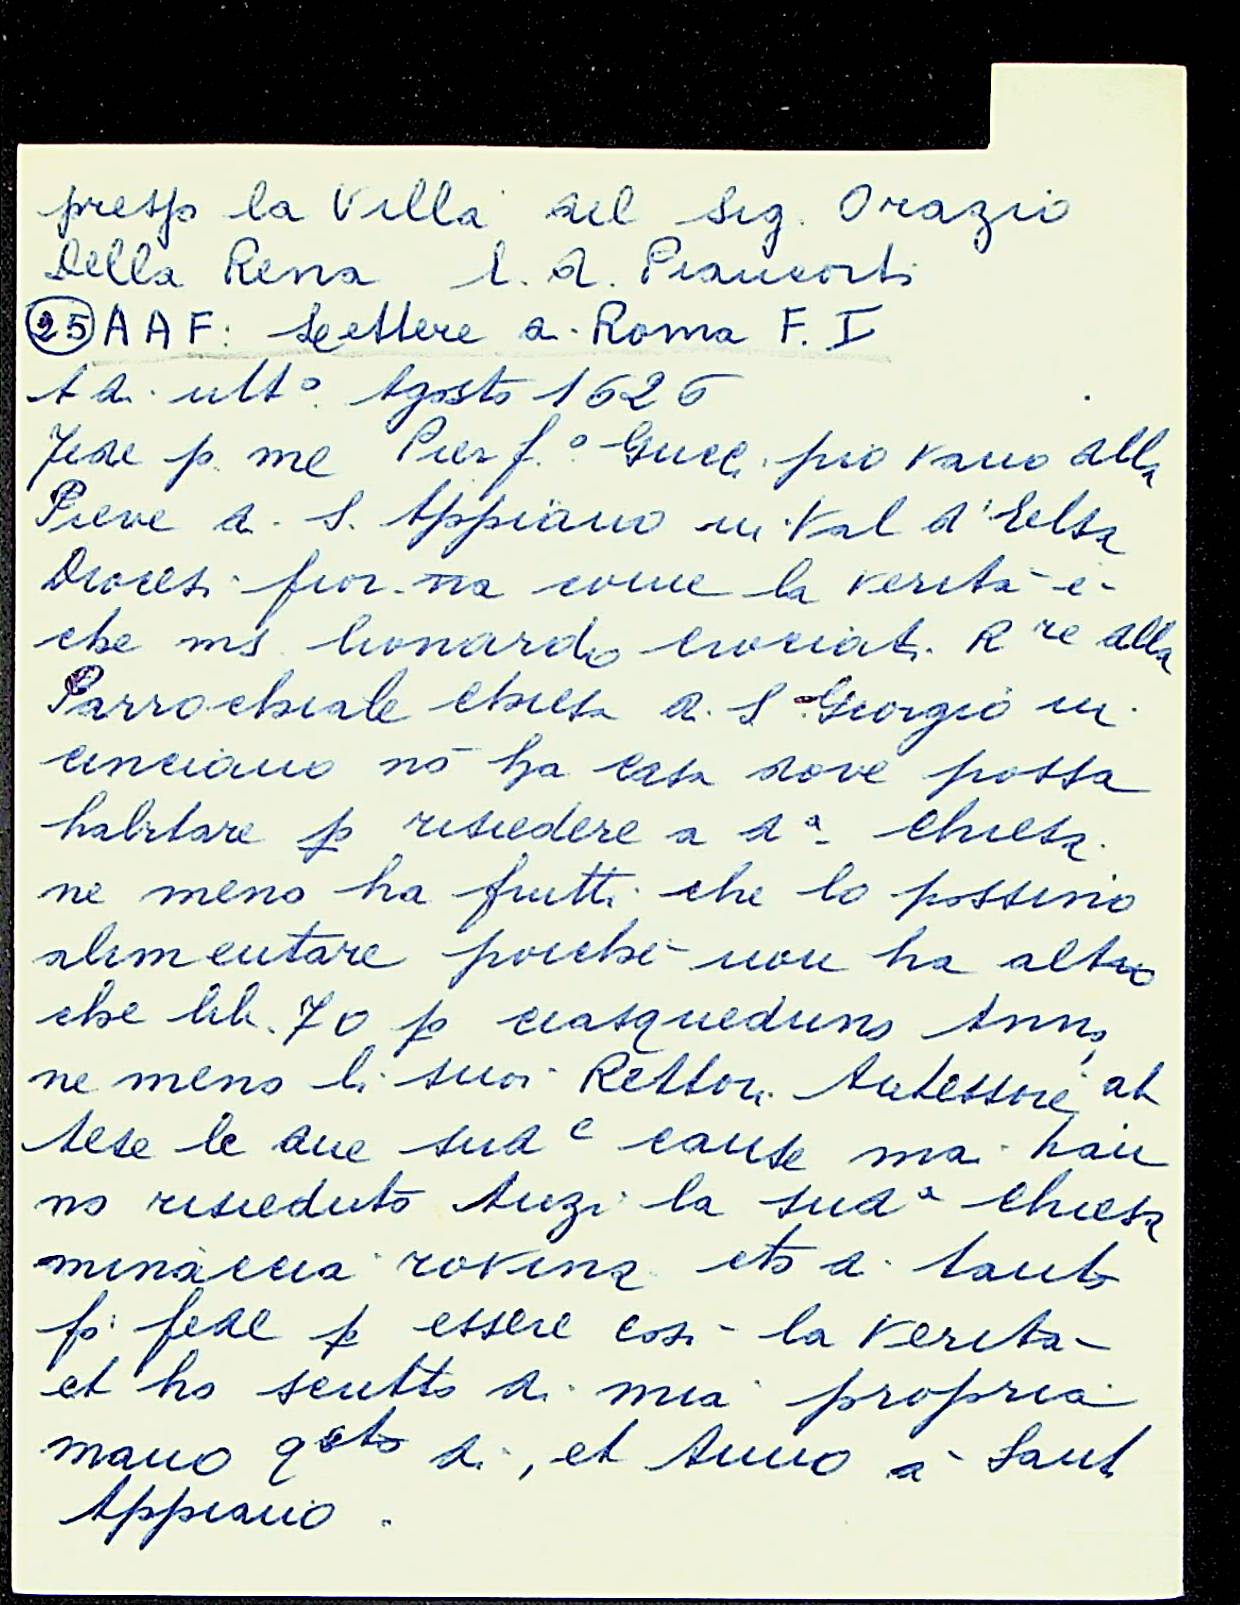 presso la Villa del Sig. Orazio
Della Rena l. d. Piancorti
25 AAF: Lettere a Roma F. I
A di ultº Agosto 1626
Fede p. me Pier f.º Gucci piovano alla
Pieve di S. Appiano in Val d'Elsa
Diocesi fior.na come la verità è
che ms. Lionardo Crociati Rre alla
Parrochiale Chiesa di S Giorgio in
Cinciano nō ha casa dove possa
habitare p risiedere a dª Chiesa.
ne meno ha frutti che lo possino
alimentare poiché non ha altro
che lib. 70 p ciasqueduno Anno,
ne meno li suoi Rettori Antessori, at
tese le due sudᵉ cause mai han
no risieduto Anzi la sudª Chiesa
minaccia rovina età di tanto
fò fede p essere così la verità
et ho scritto di mia propria
mano qsto dì, et Anno à Sant
Appiano.